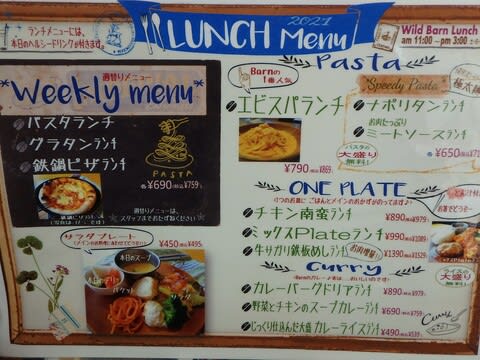 ランチメニューには、
本日のヘルシードリンクが付きます。
LUNCH Menu
2021
Wild Barn Lunch
am 11:00 ― pm 3:00
週替りメニュー
Weekly menu
パスタランチ
グラタンランチ
鉄鍋ピザランチ
PASTA
各 ¥690(税込¥759)
週替りメニューは、
スタッフまでおたずねください
サラダプレート
¥450 税込¥495
本日のスープ
本日のデリ
バケット
サラダ
Pasta
Barnの
1番人気
エビスパランチ
¥790(税込¥869)
Speedy Pasta
ナポリタンランチ
お肉たっぷり
ミートソースランチ
各 ¥650
パスタの
大盛り
無料!
ONE PLATE
1つのお皿に ごはんとメインのおかずがのってます♪
チキン南蛮ランチ ¥890(税込¥979)
ミックスPlateランチ ¥990(税込¥1089)
牛サガリ鉄板めしランチ お肉増量! ¥1390(税込¥1529)
お箸でどうぞ
Curry
カレーバーグドリアランチ ¥890(税込¥979)
野菜とチキンのスープカレーランチ ¥890
じっくり仕込んだ大盛 カレーライスランチ ¥490
大盛り
無料!
Curry